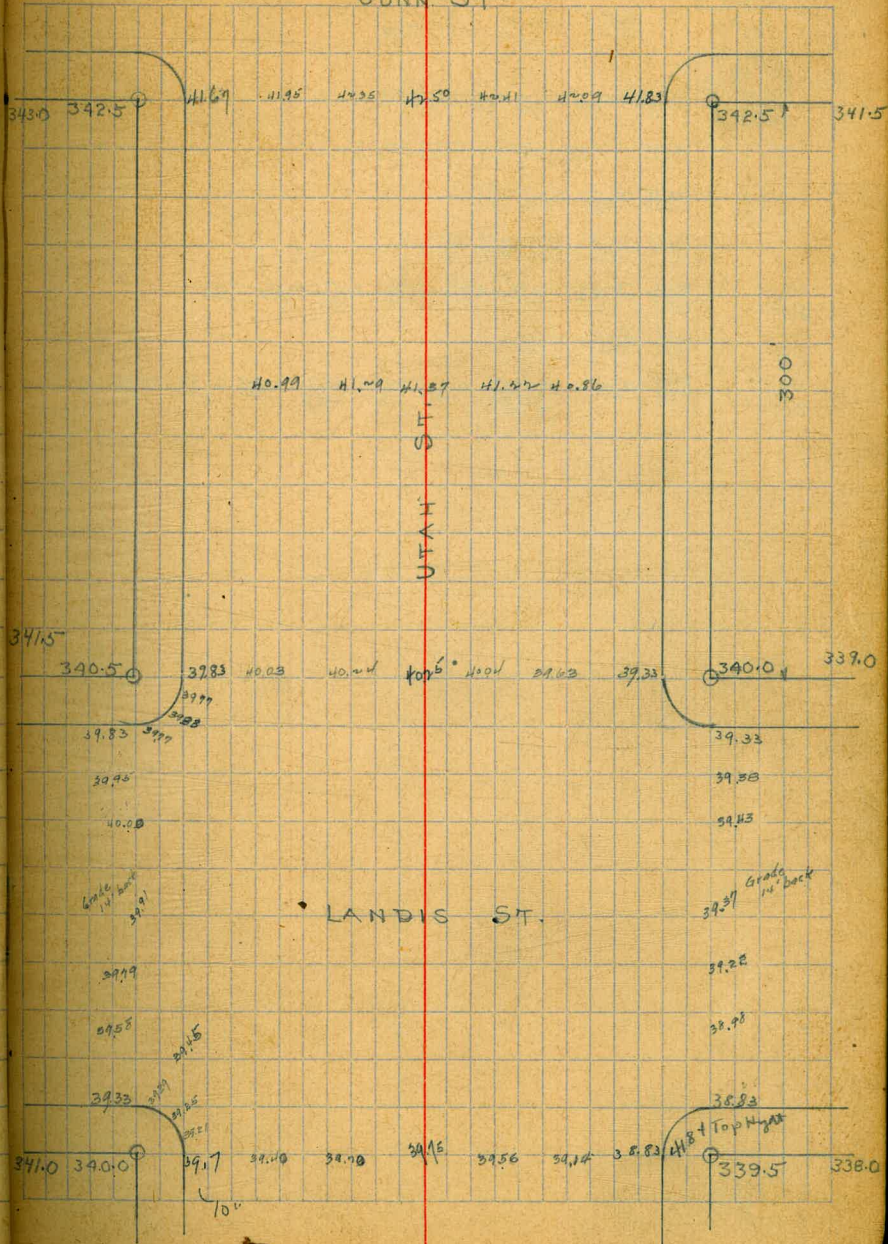 343.0 342.5 41.67 41.95 42.35 42.50 42.41 42.09 41.83 342.5 341.5
40.99 41.29 41.37 41.22 40.86
300'
UTAH ST.
341.5
340.5 39.83 40.03 40.24 40.25 40.04 39.63 39.33 340.0 339.0
39.77
39.83
39.83 39.77 39.33
39.95 39.38
40.00 39.43
Grade 14' back Grade 14' back
39.91 39.37
LANDIS ST.
39.79 39.28
39.58 38.98
39.45
39.33 39.39 38.83
39.25
39.21
341.0 340.0 39.17 39.40 39.70 39.75 39.56 39.14 38.83 41.84 Top Hydt 339.5 338.0
10"